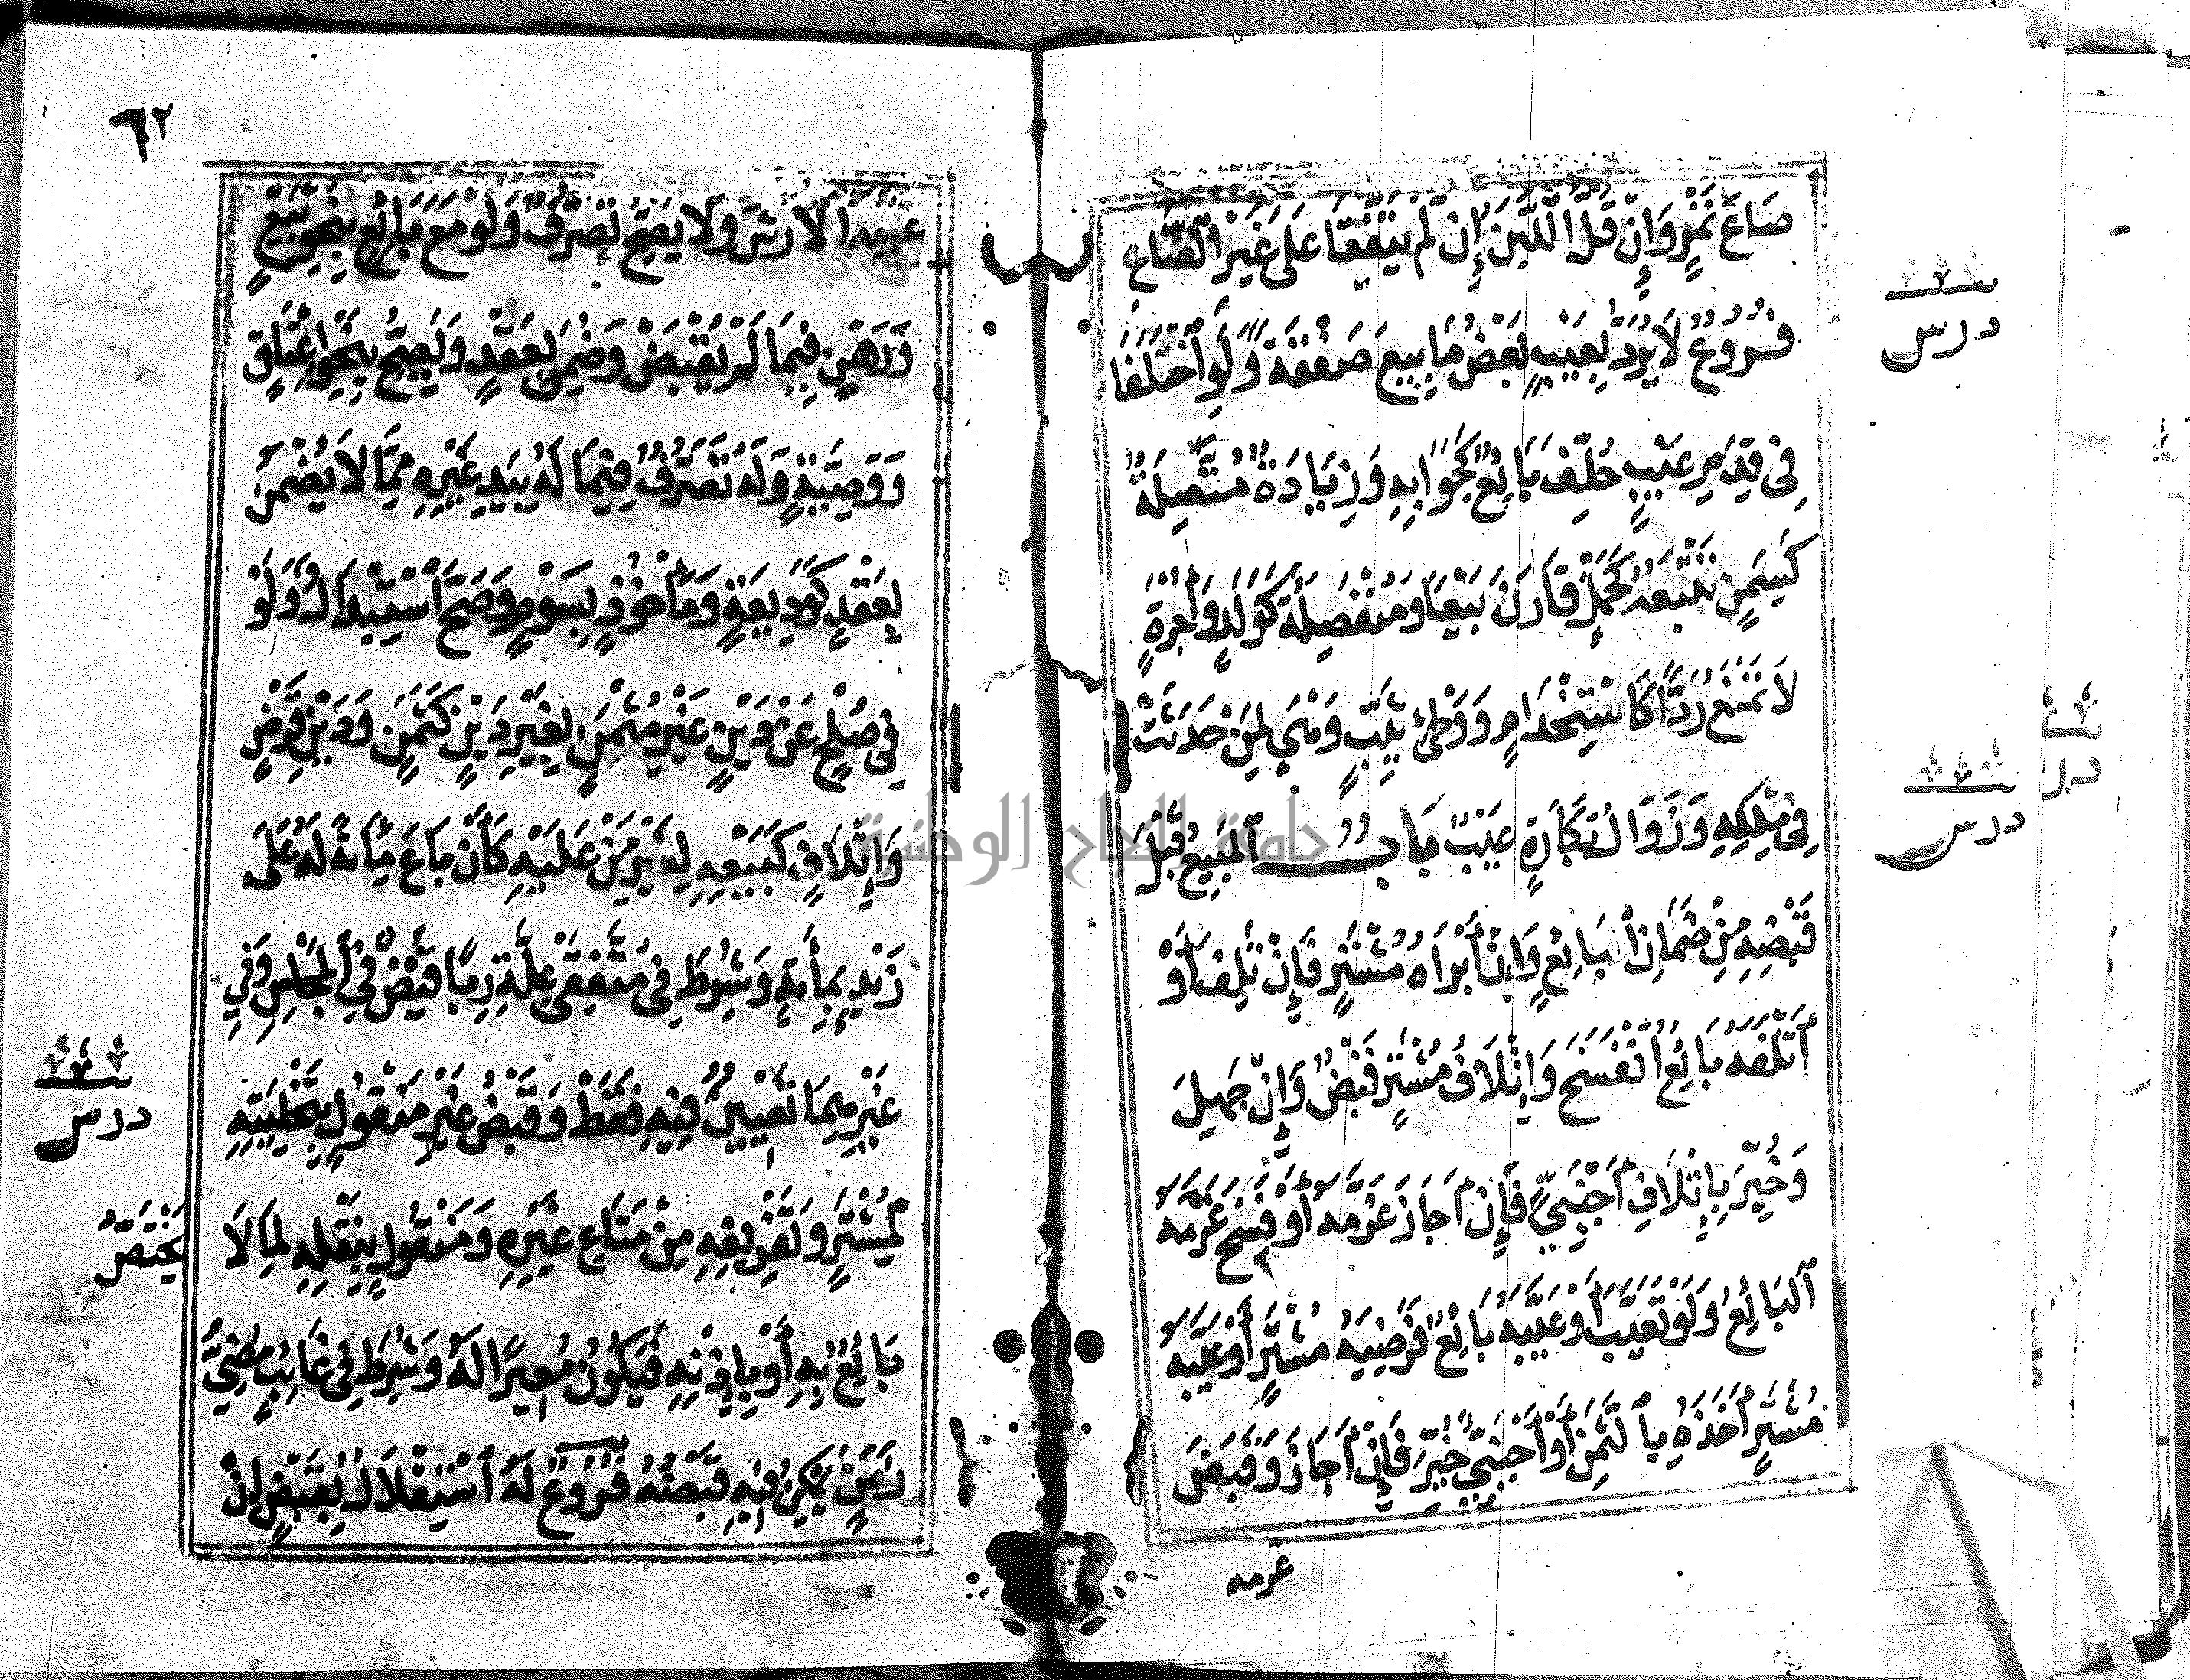 صَاعَ تَمْرٍ وَإِنْ قَلَّ اللَّبَنُ إِنْ لَمْ يَتَّفِقَا عَلَى غَيْرِ الصَّاعِ
درس
فُرُوعٌ لَا يُرَدُّ بِعَيْبٍ بَعْضُ مَا بِيعَ صَفْقَةً وَلَوِ اخْتَلَفَا
فِي قِدَمِ عَيْبٍ حَلَفَ بَائِعٌ كَجَوَابِهِ وَزِيَادَةٌ مُتَّصِلَةٌ
كَسِمَنٍ تَتْبَعُهُ كَحَمْلٍ قَارَنَ بَيْعًا وَمُنْفَصِلَةٌ كَوَلَدٍ وَأُجْرَةٍ
لَا تَمْنَعُ رَدًّا كَاسْتِخْدَامٍ وَوَطْئِ ثَيِّبٍ وَهْيَ لِمَنْ حَدَثَتْ
فِي مِلْكِهِ وَزَوَالُ بَكَارَةٍ عَيْبٌ بَابٌ الْمَبِيعُ قَبْلَ
درس
قَبْضِهِ مِنْ ضَمَانِ بَائِعٍ وَإِنْ أَبْرَأَهُ مُشْتَرٍ فَإِنْ تَلِفَ أَوْ
أَتْلَفَهُ بَائِعٌ انْفَسَخَ وَإِتْلَافُ مُشْتَرٍ قَبْضٌ وَإِنْ جَهِلَ
وَخُيِّرَ بِإِتْلَافِ أَجْنَبِيٍّ فَإِنْ أَجَازَ غَرَّمَهُ أَوْ فَسَخَ غَرَّمَهُ
الْبَائِعُ وَلَوْ تَعَيَّبَ أَوْ عَيَّبَهُ بَائِعٌ فَرَضِيَهُ مُشْتَرٍ أَوْ عَيَّبَهُ
مُشْتَرٍ أَخَذَهُ بِالثَّمَنِ أَوْ أَجْنَبِيٌّ خُيِّرَ فَإِنْ أَجَازَ وَقَبَضَ
غرمه
٦٢
غَرَّمَهُ الْأَرْشَ وَلَا يَصِحُّ تَصَرُّفٌ وَلَوْ مَعَ بَائِعٍ بِنَحْوِ بَيْعٍ
وَرَهْنٍ فِيمَا لَمْ يُقْبَضْ وَضُمِنَ بِعَقْدٍ وَيَصِحُّ بِنَحْوِ إِعْتَاقٍ
وَوَصِيَّةٍ وَلَهُ تَصَرُّفٌ فِيمَا لَهُ بِيَدِ غَيْرِهِ مِمَّا لَا يُضْمَنُ
بِعَقْدٍ كَوَدِيعَةٍ وَمَأْخُوذٍ بِسَوْمٍ وَصَحَّ اسْتِبْدَالٌ وَلَوْ
فِي صُلْحٍ عَنْ دَيْنٍ غَيْرِ مُثْمَنٍ بِغَيْرِ دَيْنٍ كَثَمَنٍ وَدَيْنِ قَرْضٍ
وَإِتْلَافٍ كَبَيْعِهِ لِغَيْرِ مَنْ عَلَيْهِ كَأَنْ بَاعَ مِائَةً لَهُ عَلَى
زَيْدٍ بِمِائَةٍ وَشُرِطَ فِي مُتَّفِقَيْ عِلَّةِ رِبًا قَبْضٌ فِي الْمَجْلِسِ وَفِي
غَيْرِهِمَا تَعْيِينٌ فِيهِ فَقَطْ وَقَبْضُ غَيْرِ مَنْقُولٍ بِتَخْلِيَتِهِ
درس
لِمُشْتَرٍ وَتَفْرِيغِهِ مِنْ مَتَاعِ غَيْرِهِ وَمَنْقُولٍ بِنَقْلِهِ لِمَا لَا
يَخْتَصُّ
بَائِعٌ بِهِ أَوْ بِإِذْنِهِ فَيَكُونُ مُعِيرًا لَهُ وَشُرِطَ فِي غَائِبٍ مُضِيُّ
زَمَنٍ يُمْكِنُ فِيهِ قَبْضُهُ فُرُوعٌ لَهُ اسْتِقْلَالٌ بِقَبْضٍ إِنْ